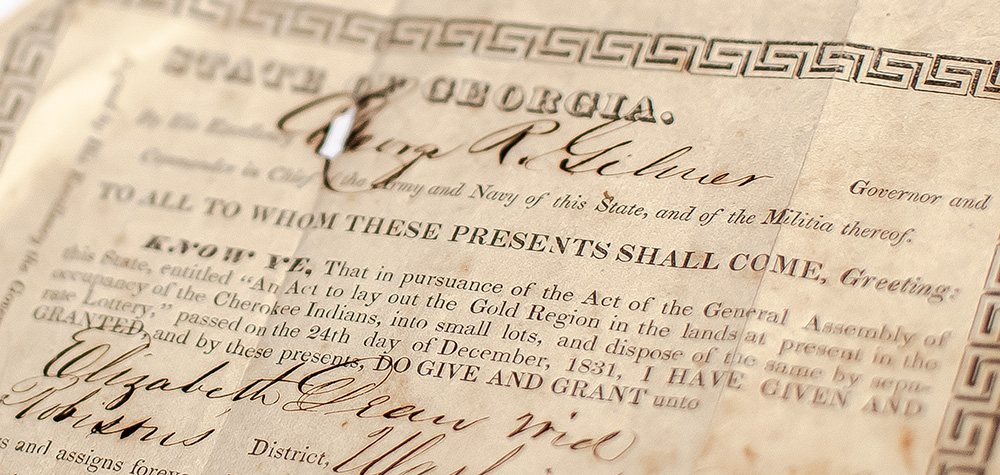 STATE OF GEORGIA.
George R. Gilmer Governor and
Commander in Chief of the Army and Navy of this State, and of the Militia thereof.
TO ALL TO WHOM THESE PRESENTS SHALL COME, Greeting:
KNOW YE, That in pursuance of the Act of the General Assembly of
this State, entitled "An Act to lay out the Gold Region in the lands at present in the
occupancy of the Cherokee Indians, into small lots, and dispose of the same by sepa-
rate Lottery," passed on the 24th day of December, 1831, I HAVE GIVEN AND
GRANTED, and by these presents, DO GIVE AND GRANT unto
Elizabeth Dean wid
Robisons District,
and assigns